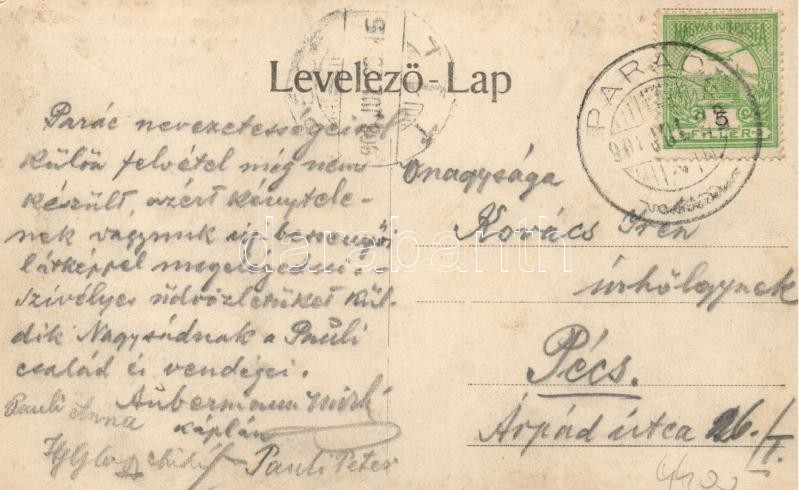 Levelező-Lap
MAGYAR KIR. POSTA
5
FILLÉR
PARÁC
Parác nevezetességeiről
külön felvétel még nem
készült, azért kénytele-
nek vagyunk
látképpel megelégedni
szívélyes üdvözletüket kül-
dik Nagysádnak a Pauli
család és vendégei.
Aubermann
Pauli Anna
kaplán
Pauli Péter
Őnagysága
Kovács Irén
úrhölgynek
Pécs.
Árpád útca 26./I.
darabanth